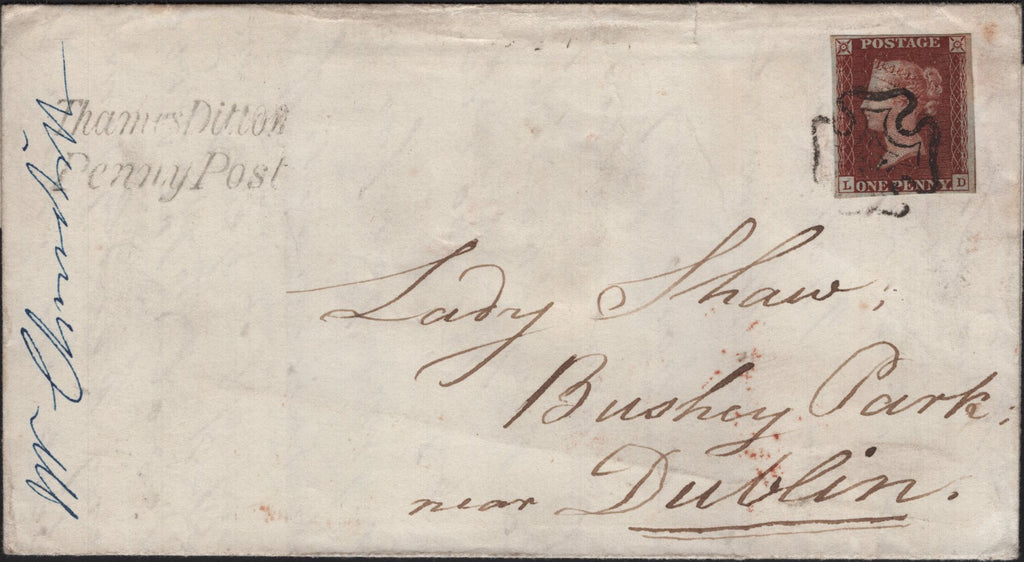 Thames Ditton
Penny Post
POSTAGE
L ONE PENNY D
Lady Shaw;
Bushey Park;
near Dublin.